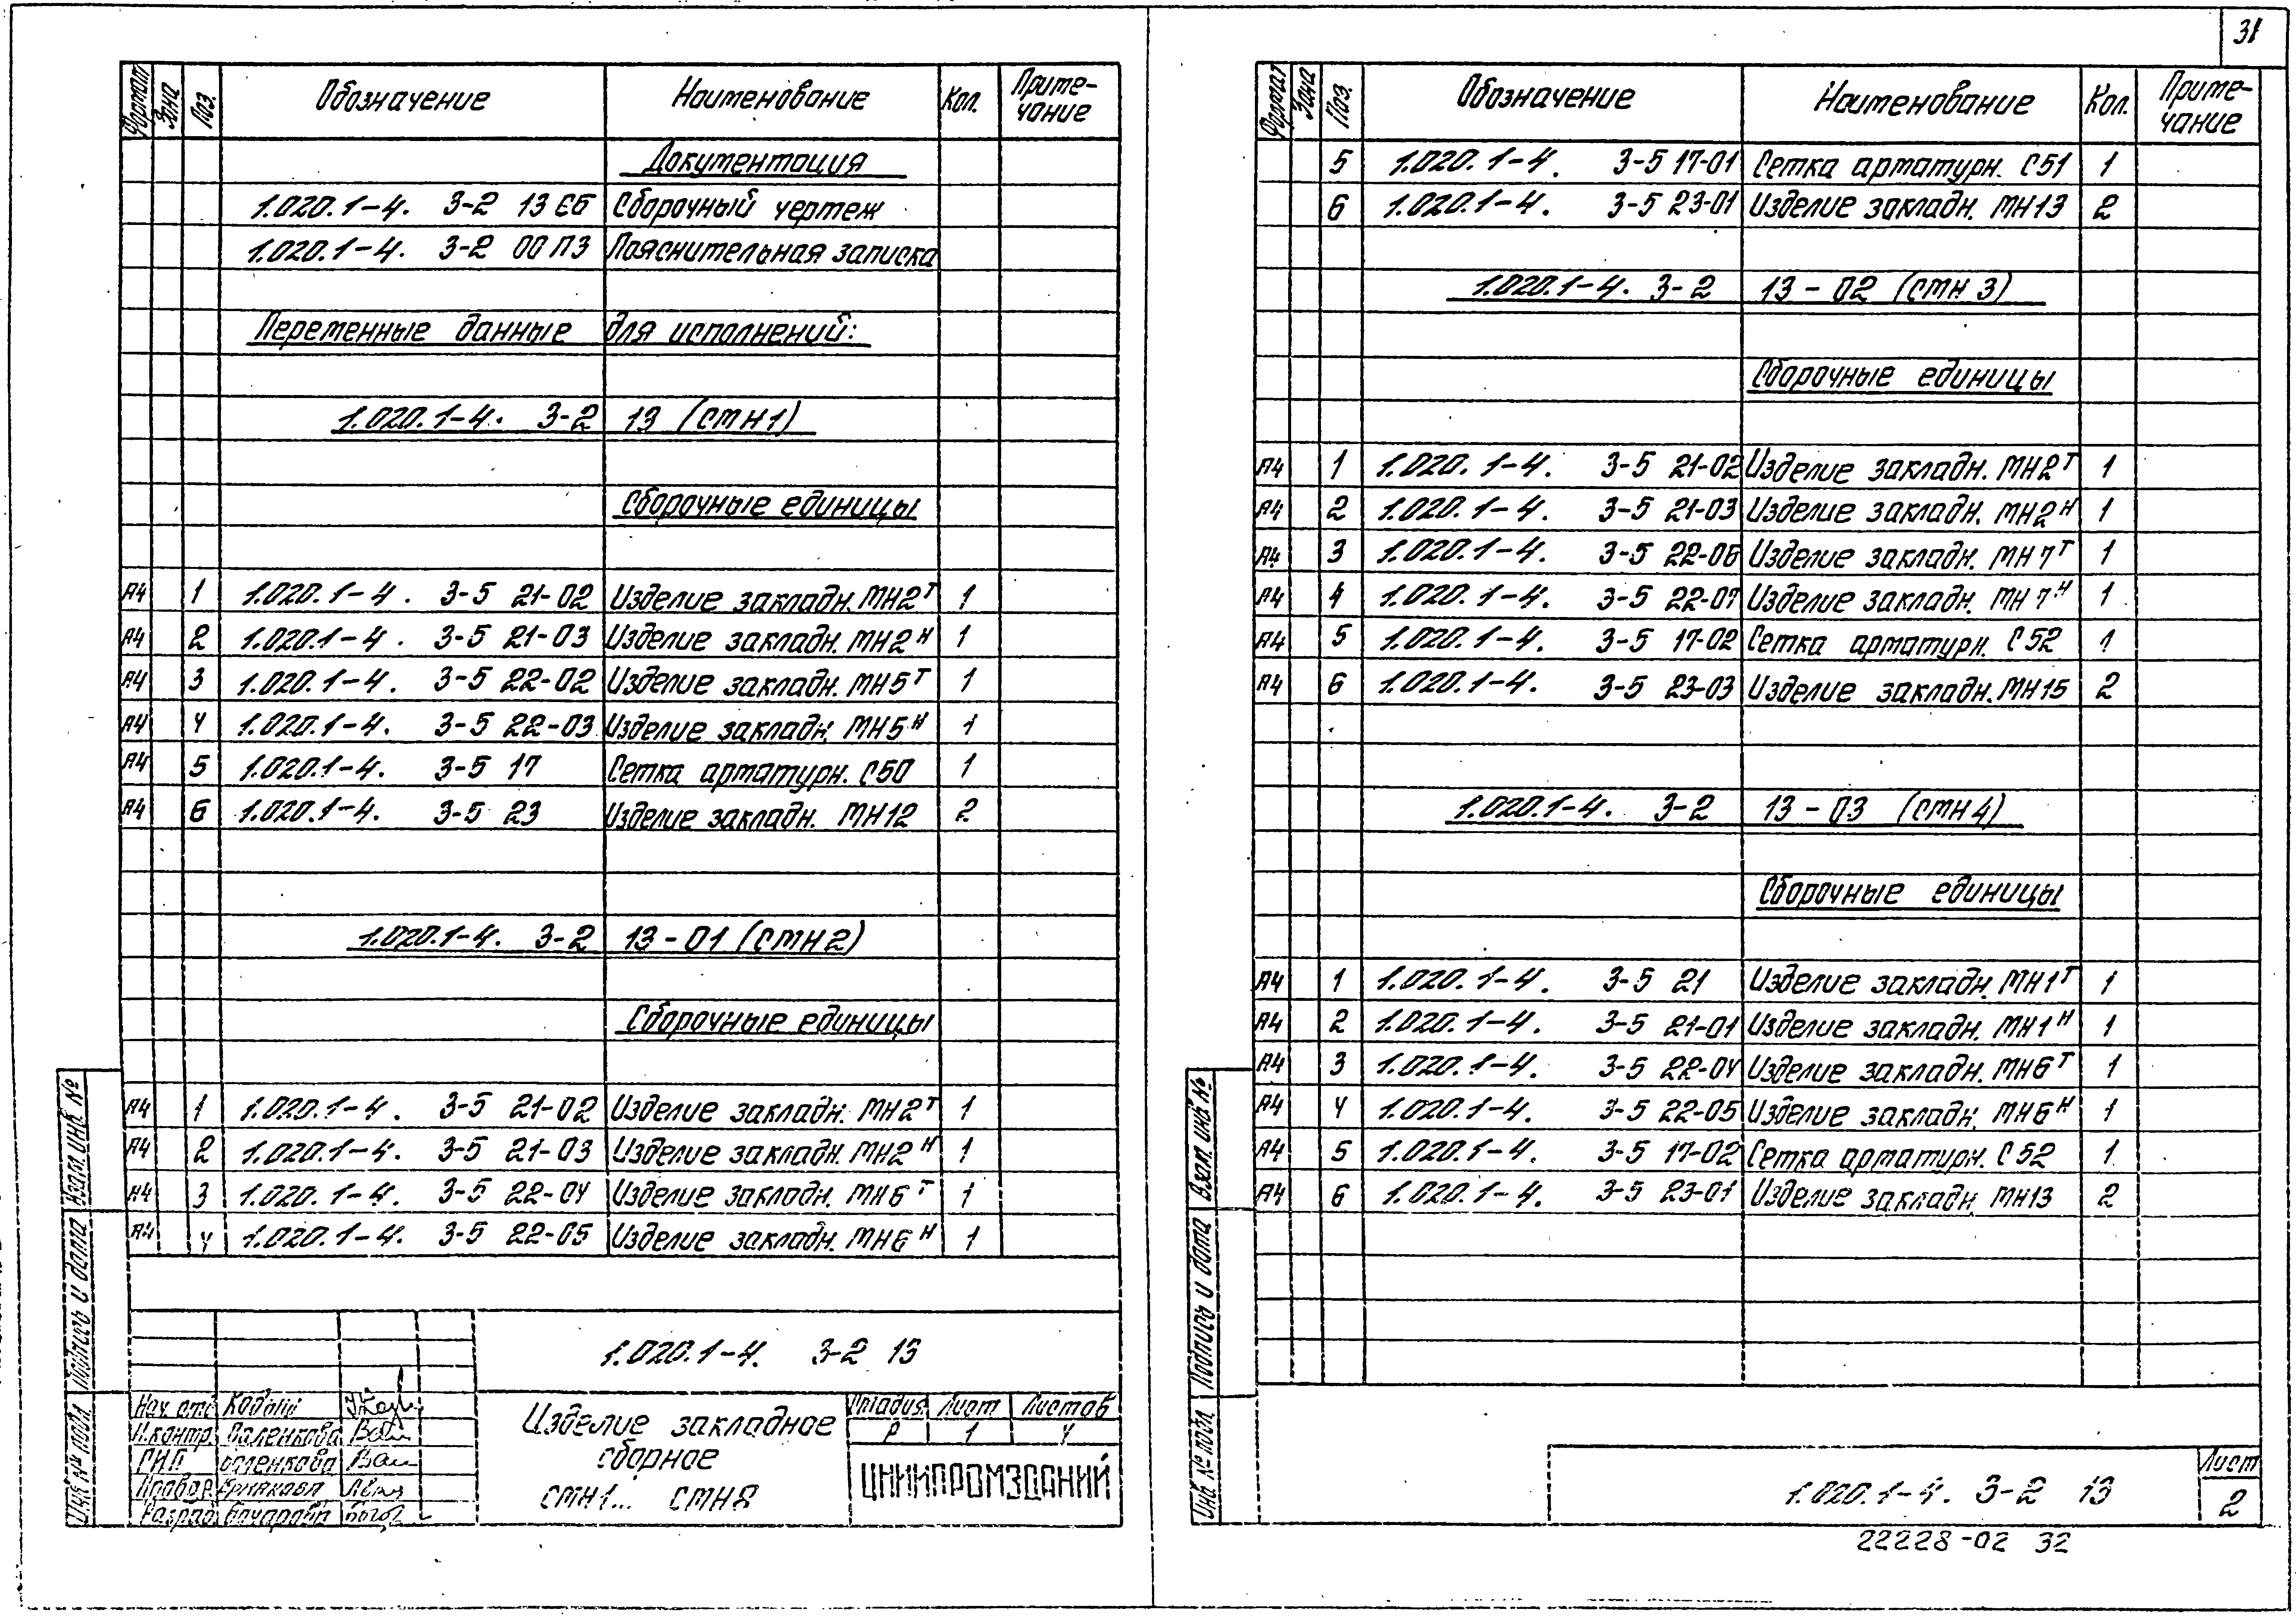 31
Формат Зона Поз. Обозначение Наименование Кол. Приме-
чание
Документация
1.020.1-4. 3-2 13 СБ Сборочный чертеж
1.020.1-4. 3-2 00 ПЗ Пояснительная записка
Переменные данные для исполнений:
1.020.1-4. 3-2 13 (СМН1)
Сборочные единицы
А4 1 1.020.1-4. 3-5 21-02 Изделие закладн. МН2Т 1
А4 2 1.020.1-4. 3-5 21-03 Изделие закладн. МН2Н 1
А4 3 1.020.1-4. 3-5 22-02 Изделие закладн. МН5Т 1
А4 4 1.020.1-4. 3-5 22-03 Изделие закладн. МН5Н 1
А4 5 1.020.1-4. 3-5 17 Сетка арматурн. С50 1
А4 6 1.020.1-4. 3-5 23 Изделие закладн. МН12 2
1.020.1-4. 3-2 13-01 (СМН2)
Сборочные единицы
А4 1 1.020.1-4. 3-5 21-02 Изделие закладн. МН2Т 1
А4 2 1.020.1-4. 3-5 21-03 Изделие закладн. МН2Н 1
А4 3 1.020.1-4. 3-5 22-04 Изделие закладн. МН6Т 1
А4 4 1.020.1-4. 3-5 22-05 Изделие закладн. МН6Н 1
Взам. инв. №
Подпись и дата
Инв. № подл.
1.020.1-4. 3-2 13
Нач. отд.
Н.контр. Паленкова
ГИП Паленкова
Провер.
Разраб.
Изделие закладное
сборное
СМН1... СМН8
Стадия Лист Листов
Р 1 4
ЦНИИПРОМЗДАНИЙ
Формат Зона Поз. Обозначение Наименование Кол. Приме-
чание
5 1.020.1-4. 3-5 17-01 Сетка арматурн. С51 1
6 1.020.1-4. 3-5 23-01 Изделие закладн. МН13 2
1.020.1-4. 3-2 13-02 (СМН3)
Сборочные единицы
А4 1 1.020.1-4. 3-5 21-02 Изделие закладн. МН2Т 1
А4 2 1.020.1-4. 3-5 21-03 Изделие закладн. МН2Н 1
А4 3 1.020.1-4. 3-5 22-06 Изделие закладн. МН7Т 1
А4 4 1.020.1-4. 3-5 22-07 Изделие закладн. МН7Н 1
А4 5 1.020.1-4. 3-5 17-02 Сетка арматурн. С52 1
А4 6 1.020.1-4. 3-5 23-03 Изделие закладн. МН15 2
1.020.1-4. 3-2 13-03 (СМН4)
Сборочные единицы
А4 1 1.020.1-4. 3-5 21 Изделие закладн. МН1Т 1
А4 2 1.020.1-4. 3-5 21-01 Изделие закладн. МН1Н 1
А4 3 1.020.1-4. 3-5 22-04 Изделие закладн. МН6Т 1
А4 4 1.020.1-4. 3-5 22-05 Изделие закладн. МН6Н 1
А4 5 1.020.1-4. 3-5 17-02 Сетка арматурн. С52 1
А4 6 1.020.1-4. 3-5 23-01 Изделие закладн МН13 2
Взам. инв. №
Подпись и дата
Инв. № подл.
1.020.1-4. 3-2 13
Лист
2
22228-02 32